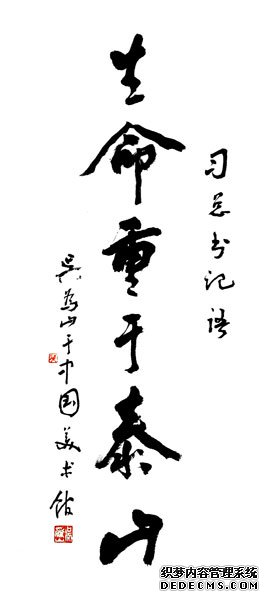 习总书记语
生命重于泰山
吴为山于中国美术馆
织梦内容管理系统
DEDECMS.COM